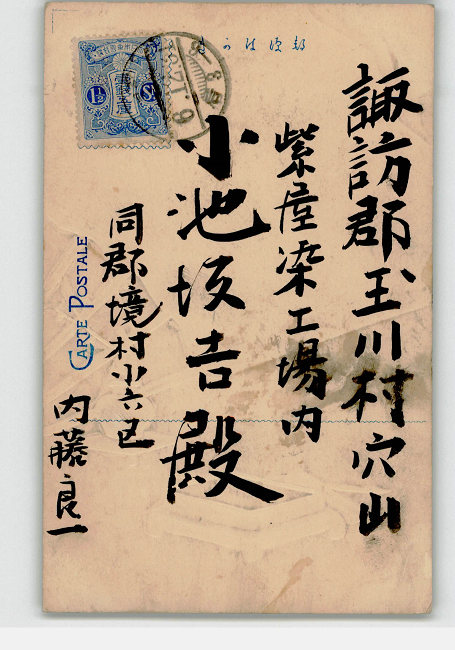 きかは便郵
諏訪郡玉川村穴山
紫屋染工場内
小池坂吉殿
同郡境村小六
内藤良一
CARTE POSTALE
1½ Sn